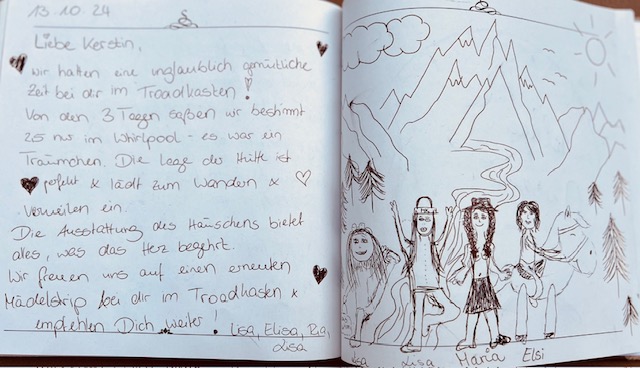 13.10.24
Liebe Kerstin,
wir hatten eine unglaublich gemütliche
Zeit bei dir im Troadkasten!
Von den 3 Tagen saßen wir bestimmt
2,5 nur im Whirlpool - es war ein
Träumchen. Die Lage der Hütte ist
perfekt & lädt zum Wandern &
Verweilen ein.
Die Ausstattung des Häuschens bietet
alles, was das Herz begehrt.
Wir freuen uns auf einen erneuten
Mädelstrip bei dir im Troadkasten &
empfehlen Dich weiter! Lisa, Elisa,
Lisa
Lisa Maria Elsi